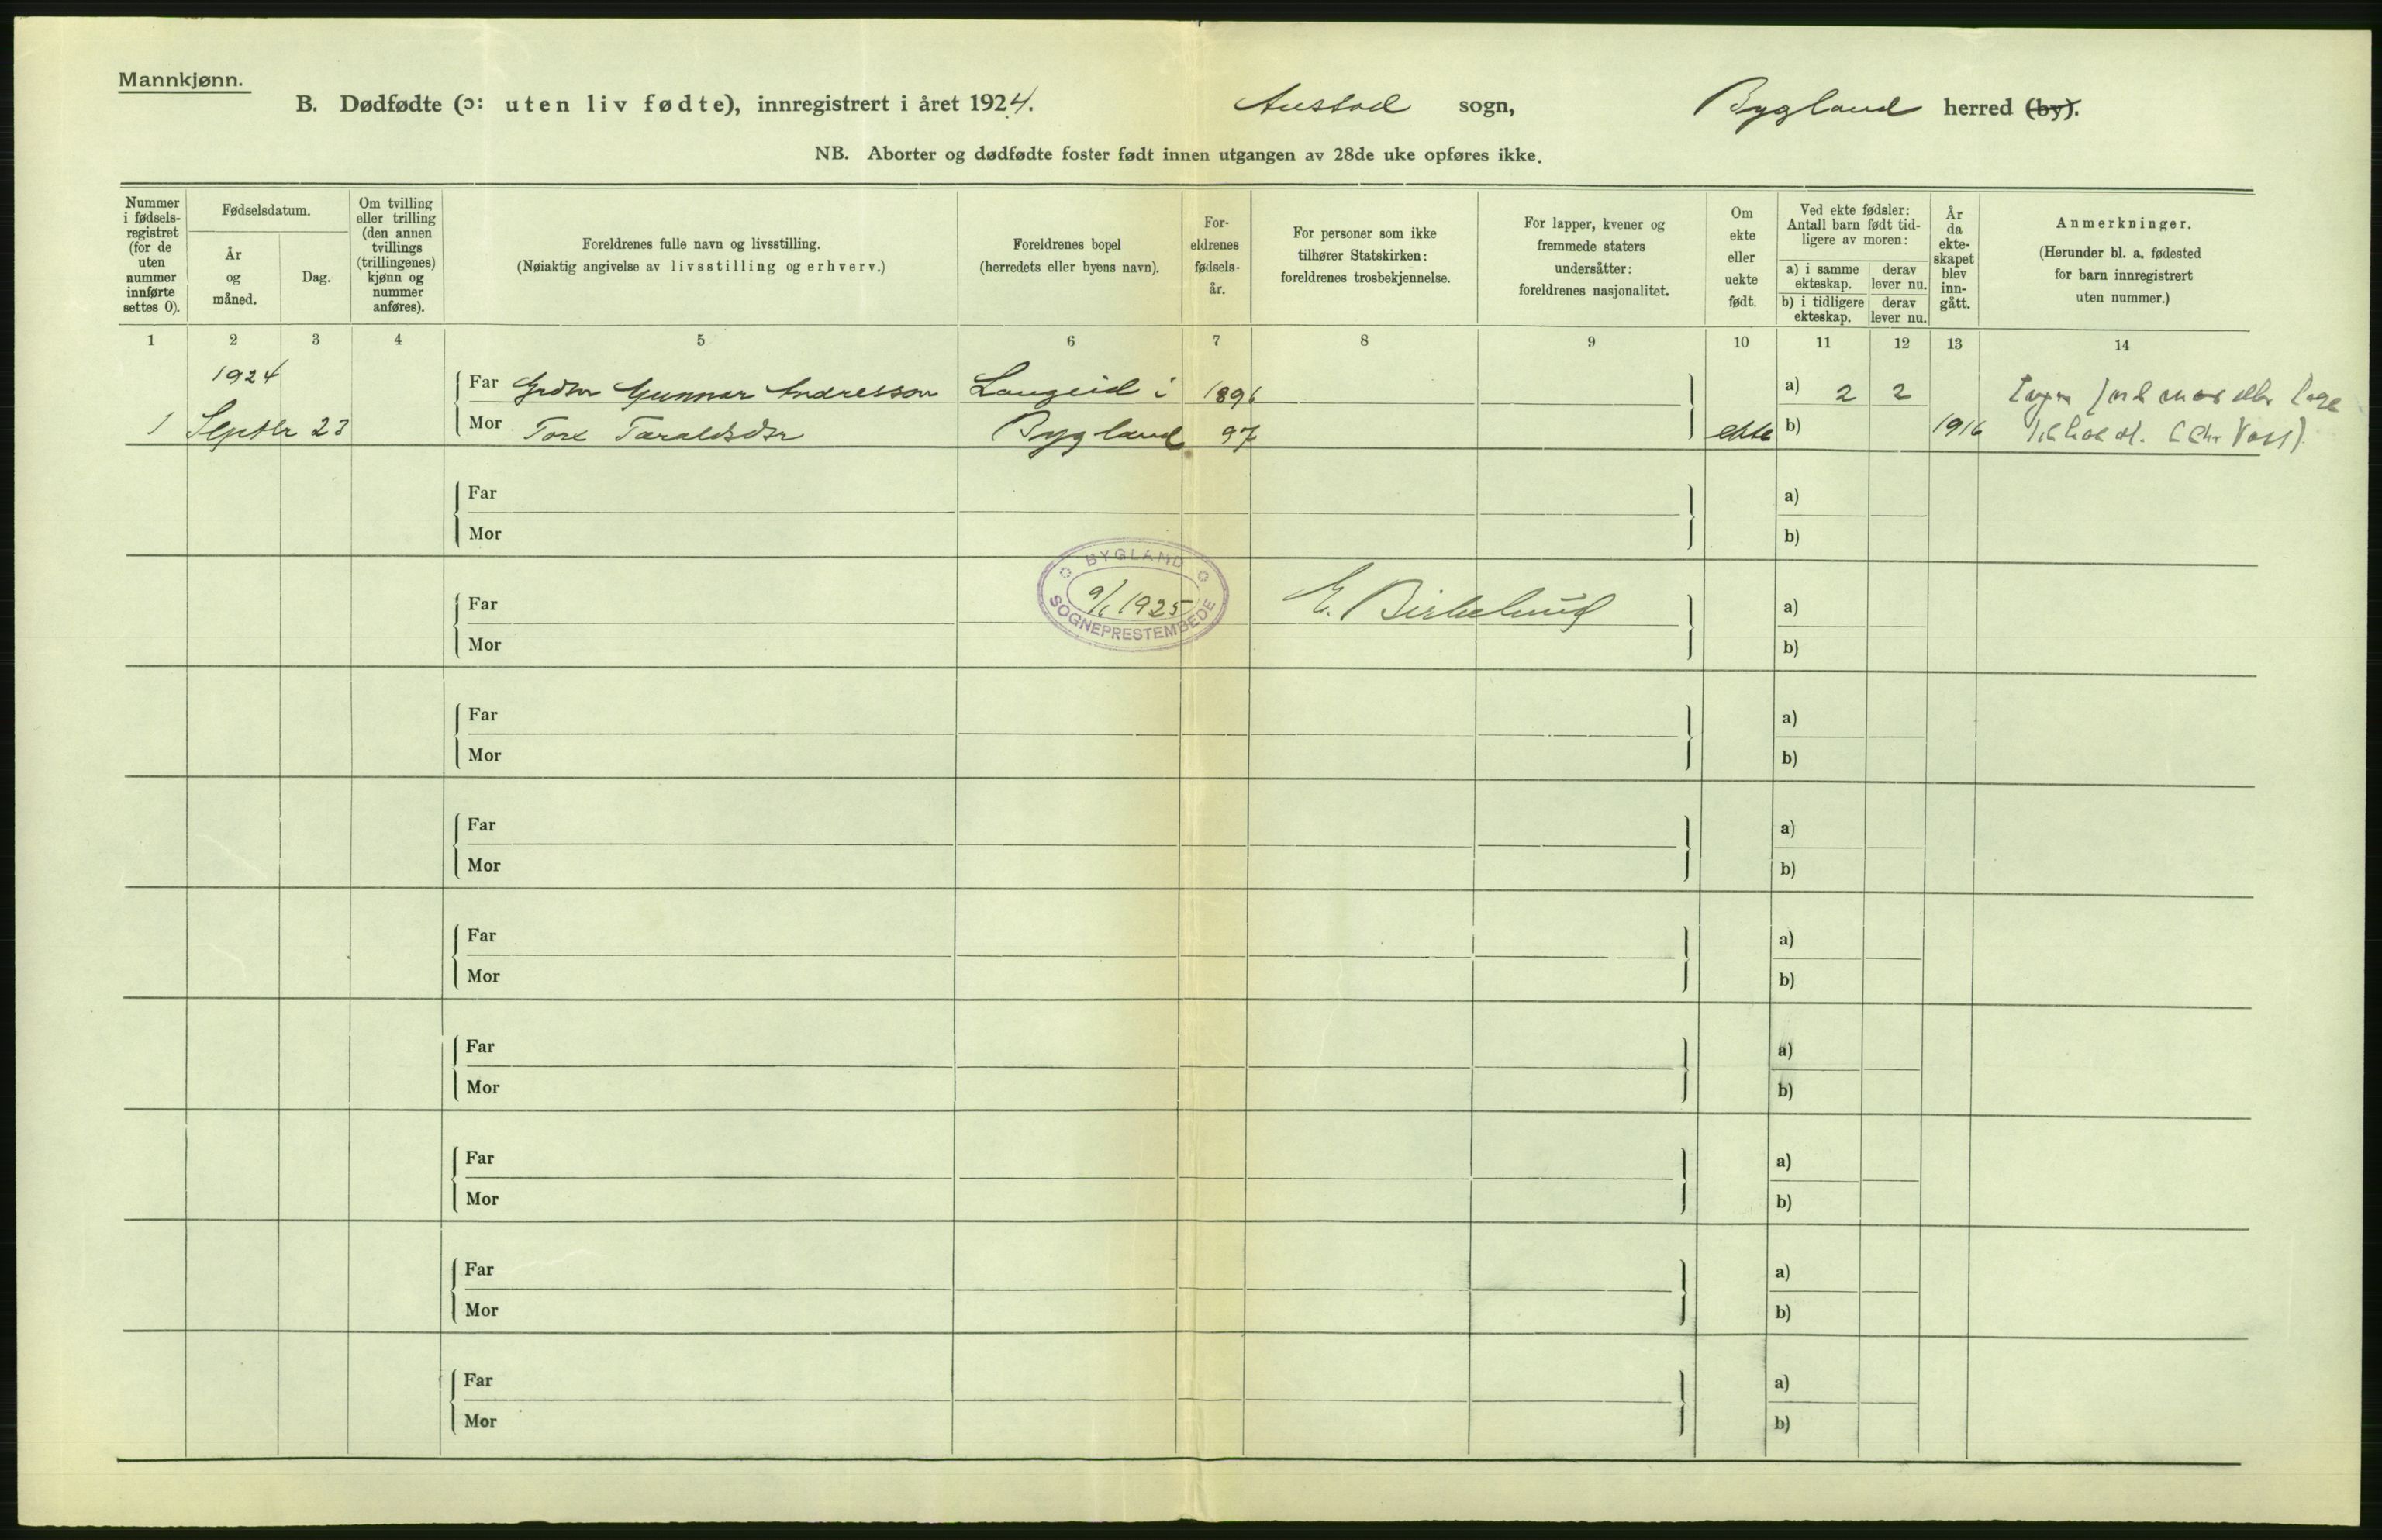 Mannkjønn.
B. Dødfødte (ɔ: uten liv fødte), innregistrert i året 1924. Austad sogn, Bygland herred (by).
NB. Aborter og dødfødte foster født innen utgangen av 28de uke opføres ikke.
Nummer
i fødsels-
registret
(for de
uten
nummer
innførte
settes 0).
Fødselsdatum.
År
og
måned.
Dag.
Om tvilling
eller trilling
(den annen
tvillings
(trillingenes)
kjønn og
nummer
anføres).
Foreldrenes fulle navn og livsstilling.
(Nøiaktig angivelse av livsstilling og erhverv.)
Foreldrenes bopel
(herredets eller byens navn).
For-
eldrenes
fødsels-
år.
For personer som ikke
tilhører Statskirken:
foreldrenes trosbekjennelse.
For lapper, kvener og
fremmede staters
undersåtter:
foreldrenes nasjonalitet.
Om
ekte
eller
uekte
født.
Ved ekte fødsler:
Antall barn født tid-
ligere av moren:
a) i samme
ekteskap.
derav
lever nu.
b) i tidligere
ekteskap.
derav
lever nu.
År
da
ekte-
skapet
blev
inn-
gått.
Anmerkninger.
(Herunder bl. a. fødested
for barn innregistrert
uten nummer.)
1 2 3 4 5 6 7 8 9 10 11 12 13 14
1924
Far Grdbr Gunnar Andresson Langeid i 1896 a) 2 2 Ingen jordmor eller læge
1 Septbr 23 Mor Tore Taraldsdtr Bygland 97 ekte b) 1916 tilkaldt.
Far a)
Mor b)
BYGLAND
9/1 1925
SOGNEPRESTEMBEDE
E. Birkelund
Far a)
Mor b)
Far a)
Mor b)
Far a)
Mor b)
Far a)
Mor b)
Far a)
Mor b)
Far a)
Mor b)
Far a)
Mor b)
Far a)
Mor b)